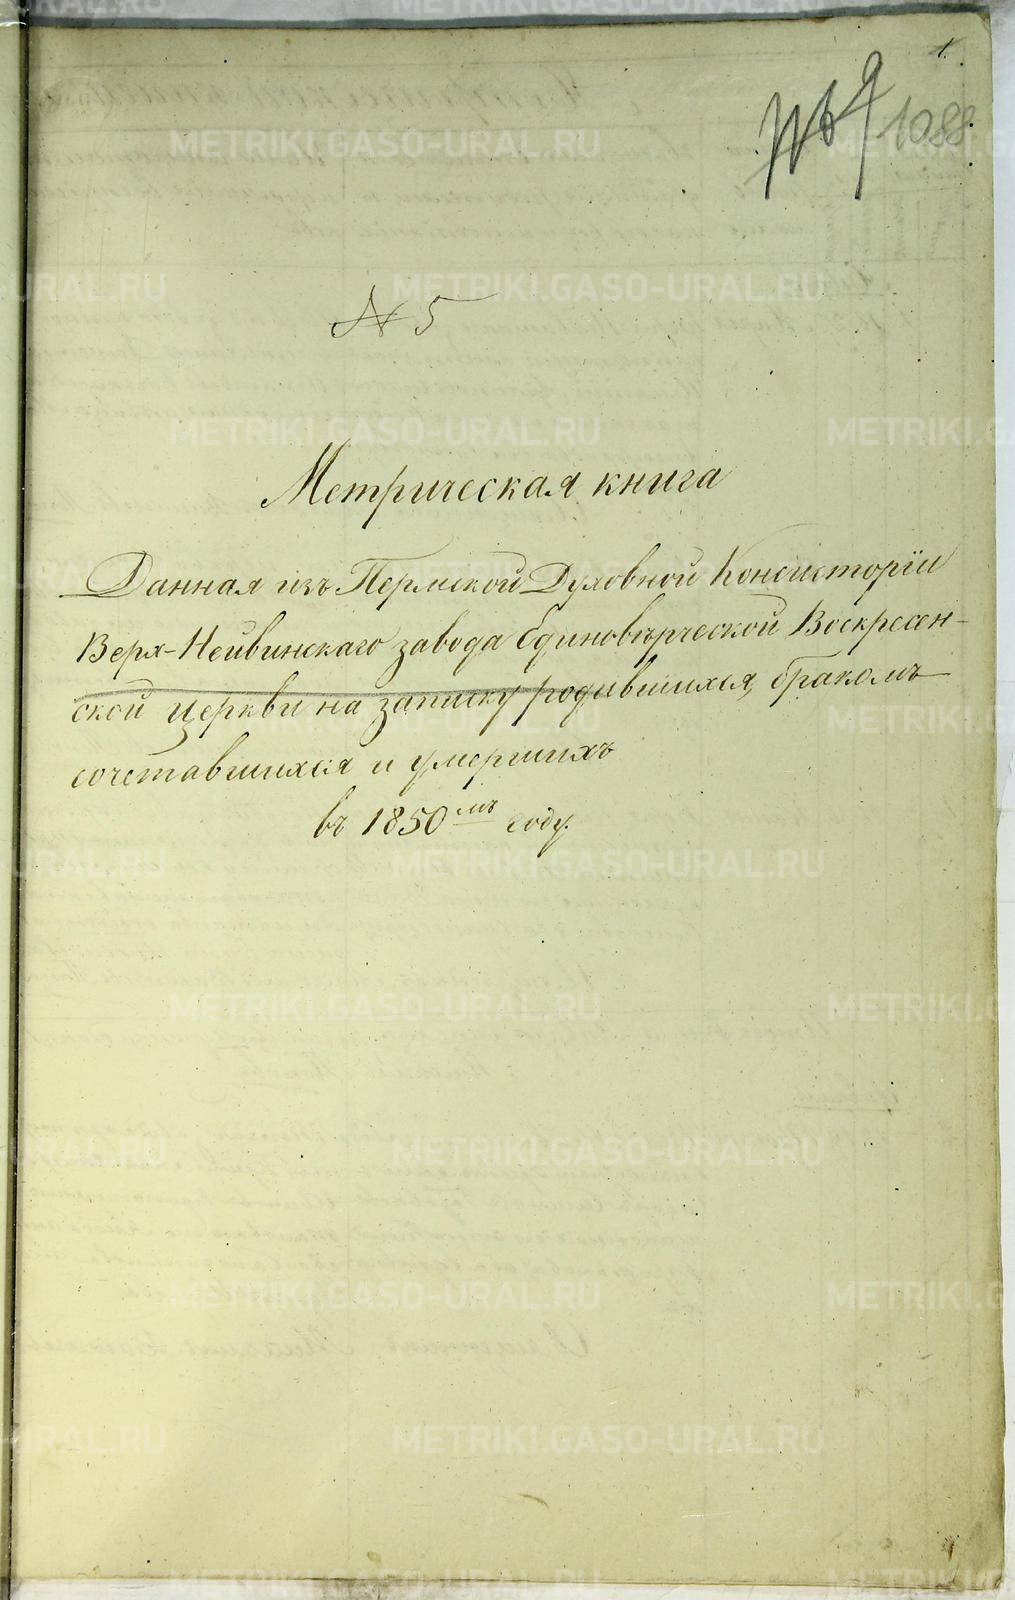 1.
1088
№ 5
Метрическая книга
Данная изъ Пермской Духовной Консисторїи
Верх-Нейвинскаго завода Единоверческой Воскресен-
ской церкви на записку родившихся, бракомъ
сочетавшихся и умершихъ
въ 1850мъ году.
METRIKI.GASO-URAL.RU